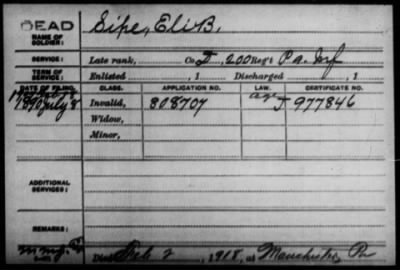 DEAD
NAME OF SOLDIER:
Sipe, Eli B.
SERVICE:
Late rank, Co. D, 200 Reg't Pa. Inf
TERM OF SERVICE:
Enlisted , 1 Discharged , 1
DATE OF FILING. CLASS. APPLICATION NO. LAW. CERTIFICATE NO.
1890 July 8 Invalid, 808707 age J 977846
Widow,
Minor,
ADDITIONAL SERVICES:
REMARKS:
Died Feb 2, 1918, at Manchester Pa